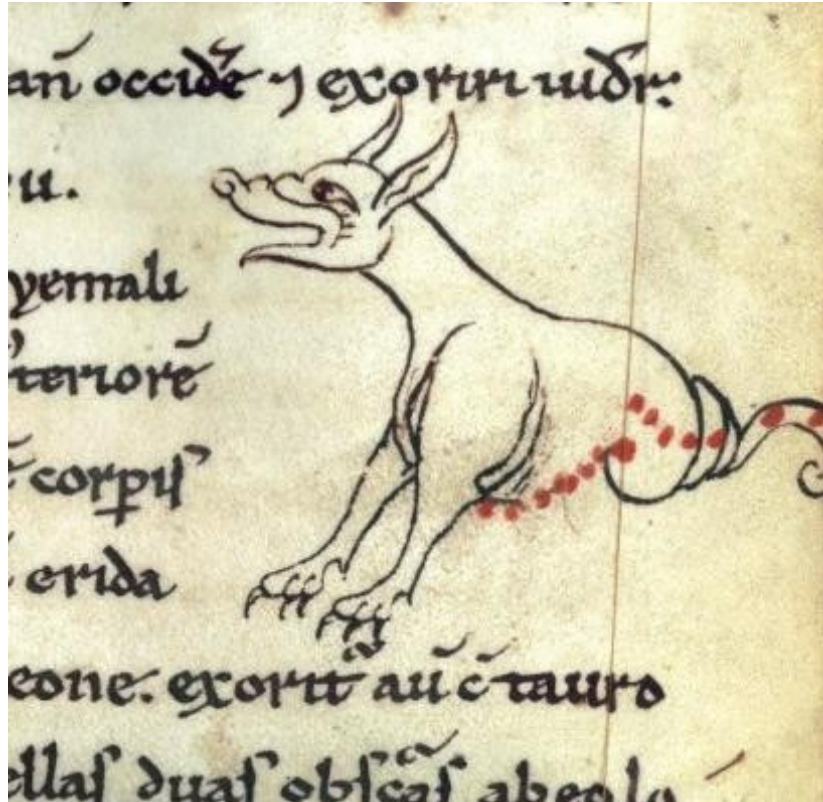 occidē ⁊ exoriri uidr̃.
u.
yemali
teriorē
corꝑis
erida
eone. exorit̃ aū c̄ tauro
ellas duas obscãs ab eolo